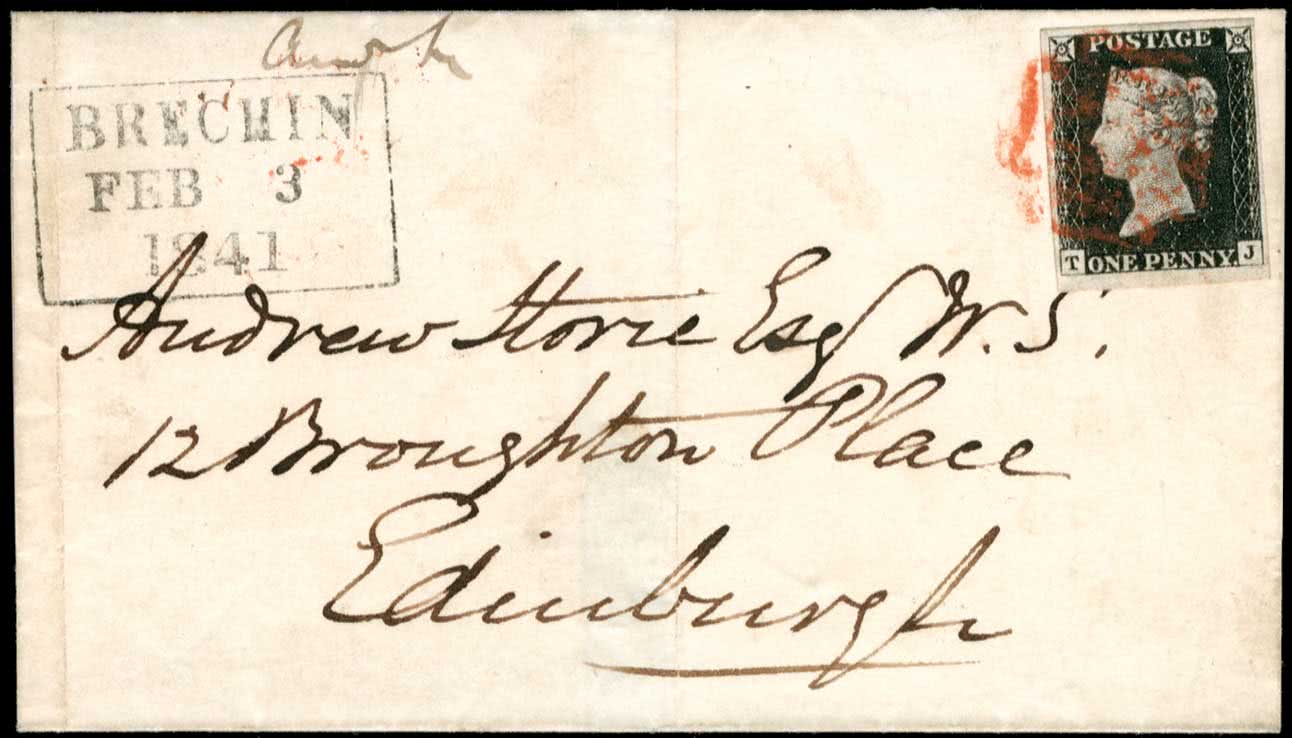 BRECHIN
FEB 3
1841
POSTAGE
T ONE PENNY. J
Andrew Storie Esq W.S.
12 Broughton Place
Edinburgh